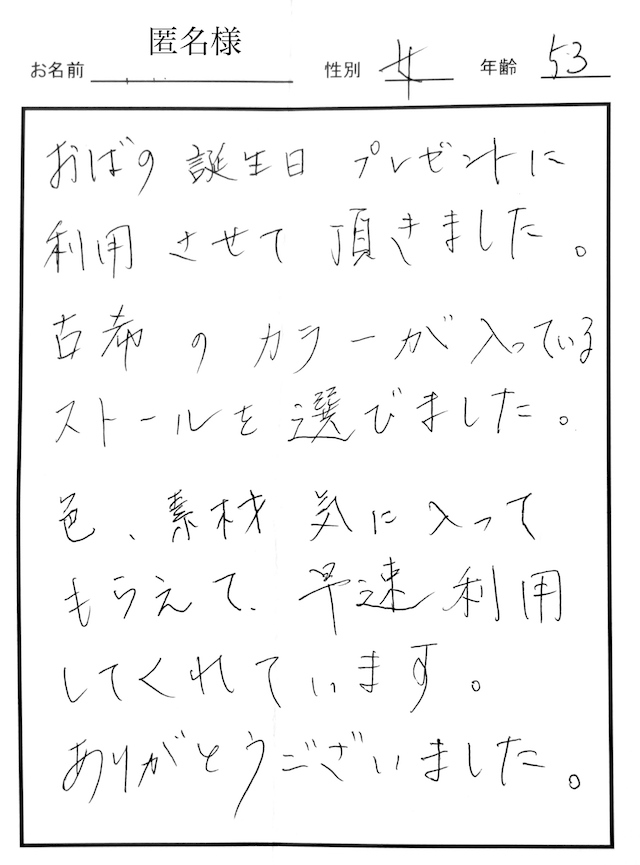 匿名様
お名前 性別 女 年齢 53
おばの 誕生日 プレゼントに
利用 させて 頂きました。
古希 の カラーが 入っている
ストールを 選びました。
色、素材 気に入って
もらえて、早速 利用
してくれています。
ありがとうございました。